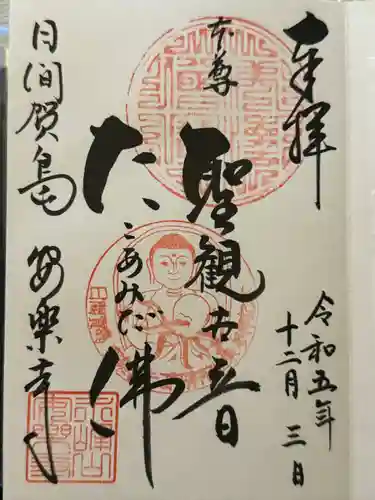 奉拝
令和五年
十二月三日
本尊
聖観世音
たこあみだ佛
日間賀島
安楽寺